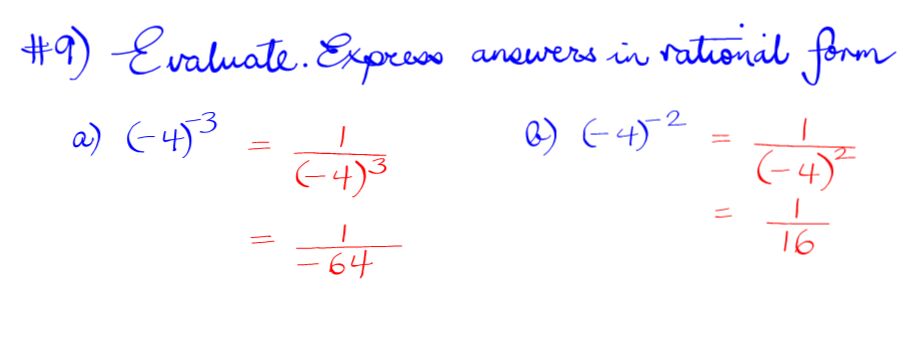 #9) Evaluate. Express answers in rational form
a) (-4)^-3 = 1/(-4)^3
= 1/-64
b) (-4)^-2 = 1/(-4)^2
= 1/16